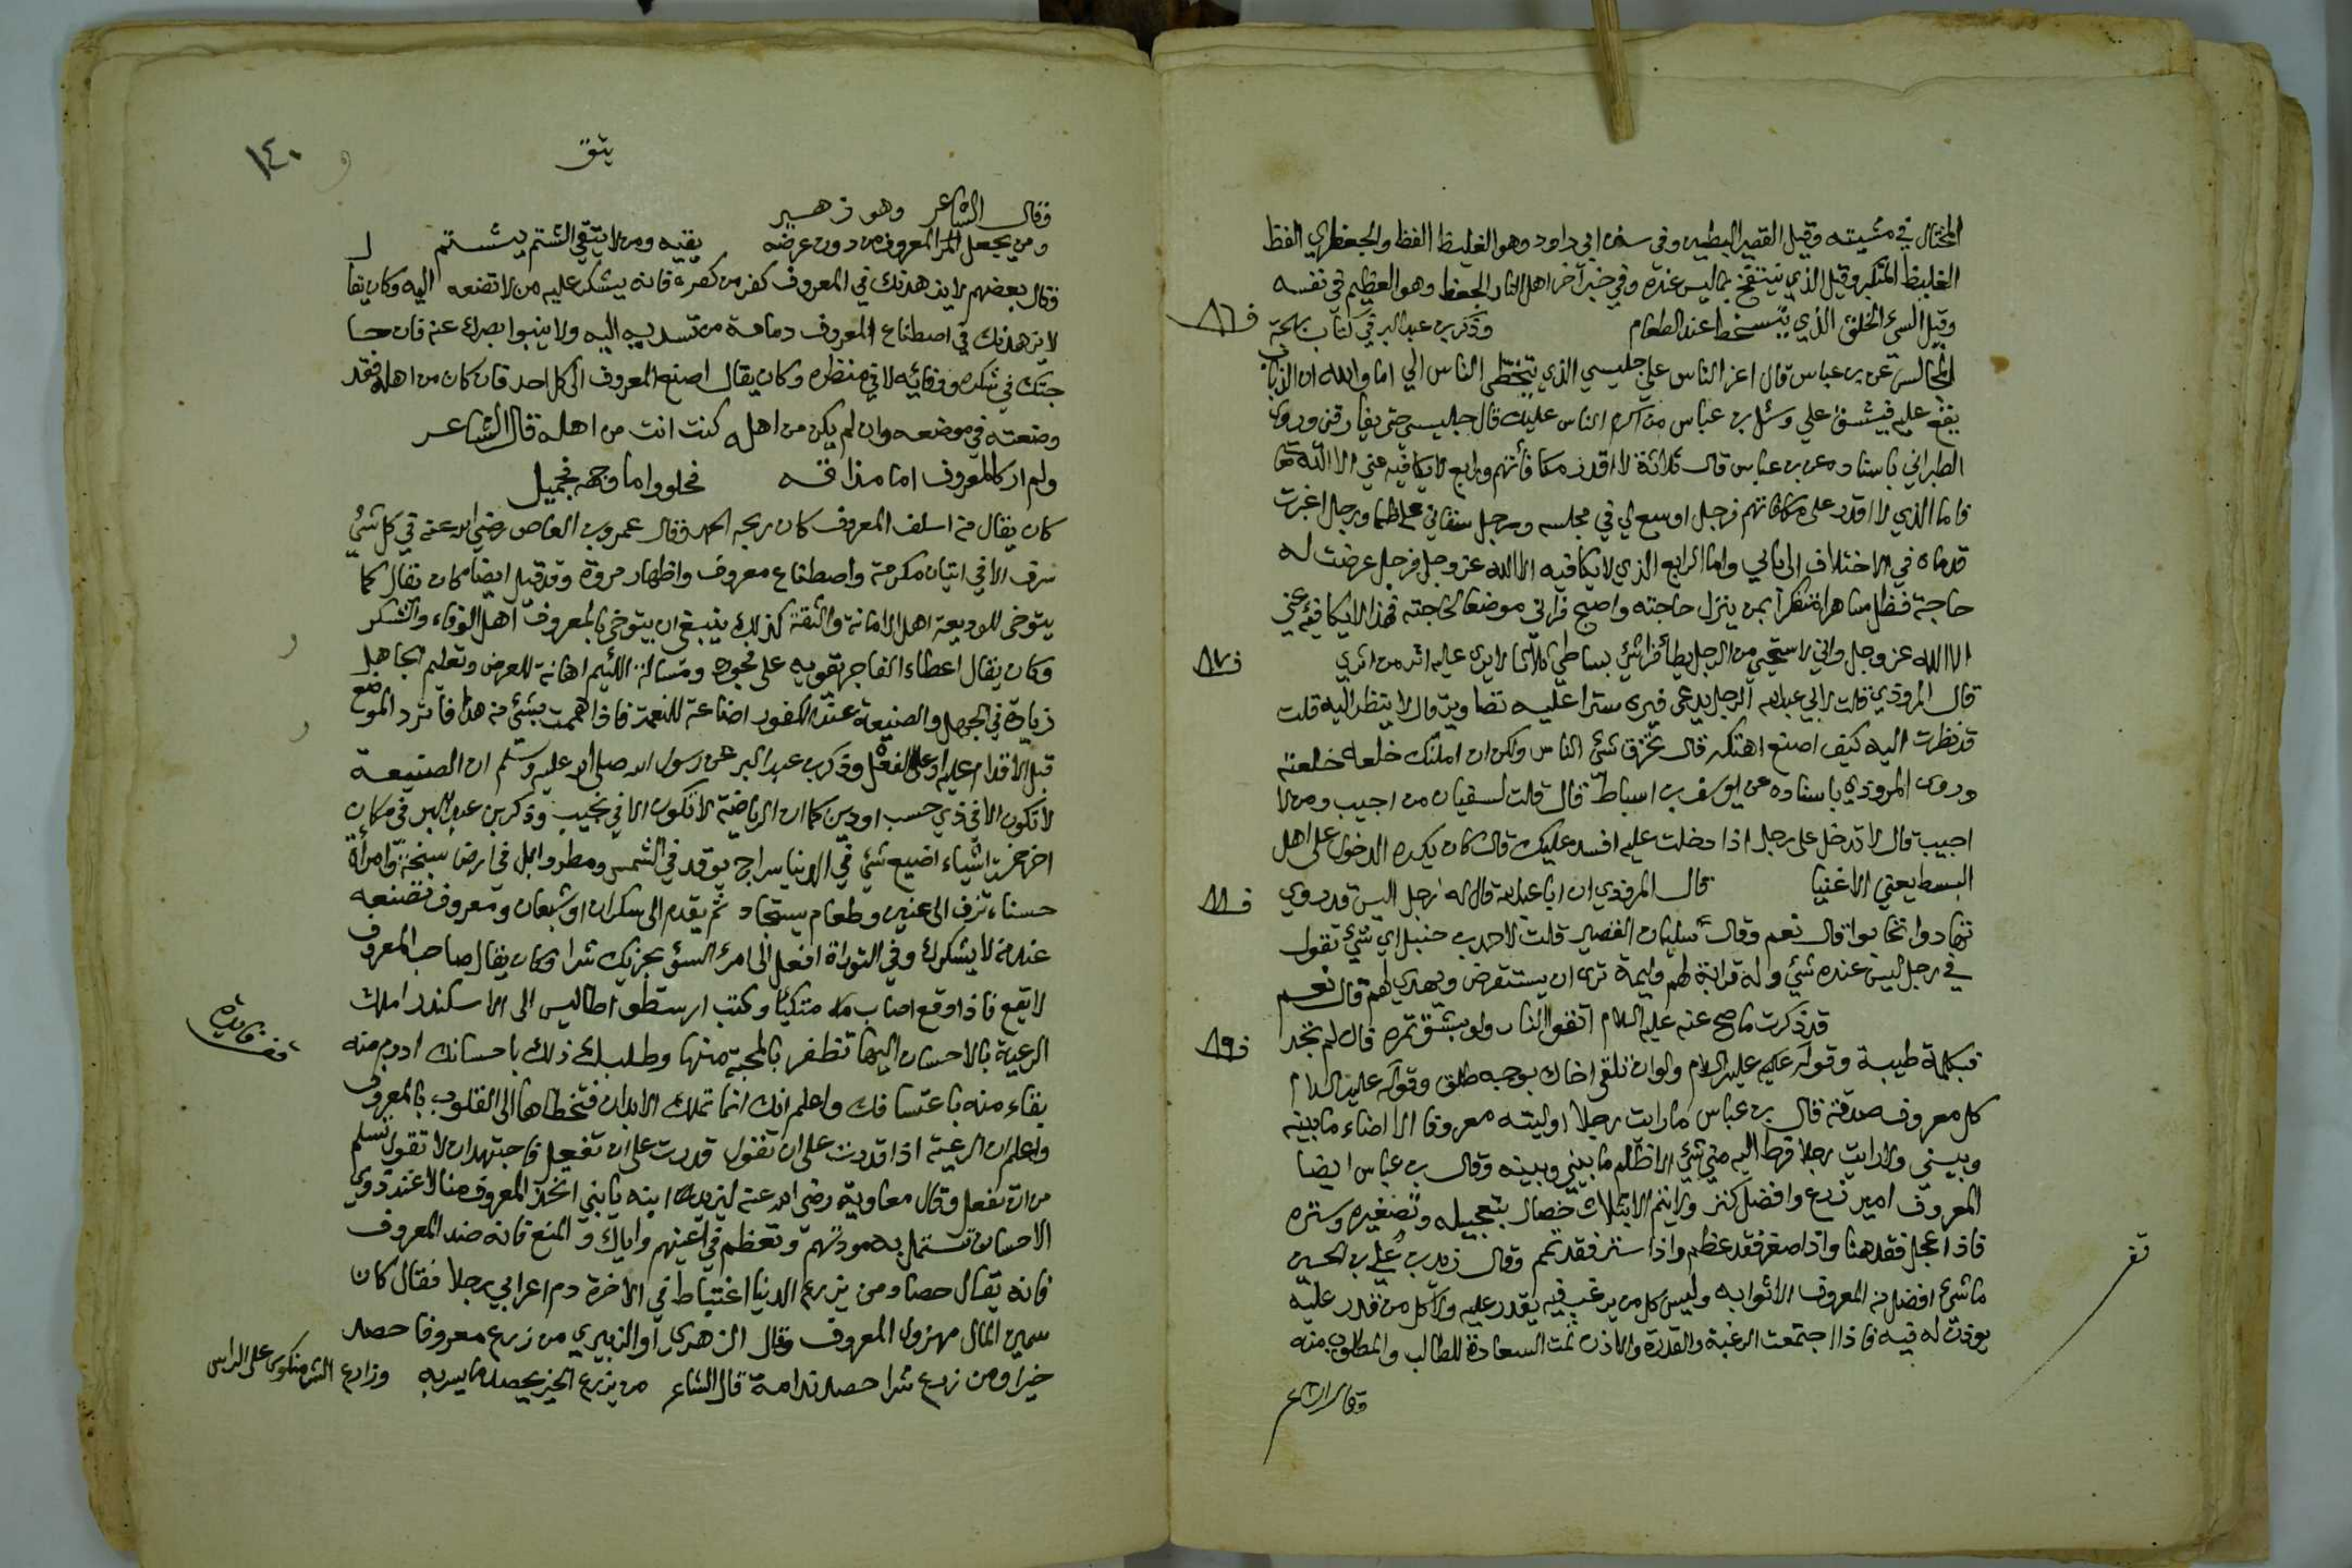 المختال في مشيته وقيل القصير البطين وفي سنن ابي داود وهو الغليظ الفظ والجعظري الفظ
الغليظ المتكبر وقيل الذي ينتفخ بما ليس عنده وفي خبر آخر اهل النار الجعظ وهو العظيم في نفسه
وقيل السيئ الخلق الذي يتسخط عند الطعام وذكر بن عبد البر في كتاب بهجة
ف ٨٦
المجالس عن بن عباس قال اعز الناس علي جليسي الذي يتخطى الناس الي اما والله ان الذباب
يقع عليه فيشق علي وسئل بن عباس من اكرم الناس عليك قال جليسي حتى يفارقني وروى
الطبراني باسناده عن بن عباس قال ثلاثة لا اقدر مكافأتهم ورابع لا يكافيه عني الا الله تعا
فاما الذي لا اقدر على مكافاتهم فرجل اوسع لي في مجلسه ورجل سقاني على ظما ورجل اغبرت
قدماه في الاختلاف الى بابي واما الرابع الذي لا يكافيه الا الله عز وجل فرجل عرضت له
حاجة فظل ساهرا متفكرا بمن ينزل حاجته واصبح فرآني موضعا لحاجته فهذا لا يكافئه عني
الا الله عز وجل واني لاستحيي من الرجل يطأ بساطي ثلاثا لا يرى عليه اثر من اثري
ف ٨٧
قال المروذي قلت لابي عبد الله الرجل يدعى فيرى سترا عليه تصاوير قال لا ينظر اليه قلت
قد نظرت اليه كيف اصنع اهتكه قال تخرق شئ الناس ولكن ان امكنك خلعه خلعته
وروى المروذي باسناده عن يوسف بن اسباط قال قلت لسفيان من اجيب ومن لا
اجيب قال لا تدخل على رجل اذا دخلت عليه افسد عليك قال كان يكره الدخول على اهل
البسط يعني الاغنيا قال المروذي ان ابا عبد الله قال له رجل اليس قد روي
ف ٨٨
تهادوا تحابوا قال نعم وقال سليمان القصير قلت لاحمد بن حنبل اي شئ تقول
في رجل ليس عنده شئ وله قرابة لهم وليمة ترى ان يستقرض ويهدي لهم قال نعم
قد ذكرت ما صح عنه عليه السلام اتقوا النار ولو بشق تمرة فان لم تجد
ف ٨٩
فبكلمة طيبة وقوله عليه السلام ولو ان تلقى اخاك بوجه طلق وقوله عليه السلام
كل معروف صدقة قال بن عباس ما رايت رجلا اوليته معروفا الا اضاء ما بينه
وبيني ولا رايت رجلا فرط اليه مني شئ الا اظلم ما بيني وبينه وقال بن عباس ايضا
المعروف امير زرع وافضل كنز ولا يتم الا بثلاث خصال بتعجيله وتصغيره وستره
فاذا عجل فقد هنا واذا صغر فقد عظم واذا ستر فقد تمم وقال زيد بن علي بن الحسين
ما شئ افضل من المعروف الا ثوابه وليس كل من يرغب فيه يقدر عليه ولا كل من قدر عليه
يوذن له فيه فاذا اجتمعت الرغبة والقدرة والاذن تمت السعادة للطالب والمطلوب منه
وقال الشاعر
١٤٠
فقال الشاعر وهو زهير
ومن يجعل المعروف من دون عرضه يقيه ومن لا يتقي الشتم يشتم
وقال بعضهم لا يزهدنك في المعروف كفر من كفره فانه يشكر عليه من لا تصنعه اليه وكان يقا ل
لا يزهدنك في اصطناع المعروف دمامة من تسديه اليه ولا ينبوا بصرك عنه فان حا
جتك في شكره ووفائه لا في منظره وكان يقال اصنع المعروف الى كل احد فان كان من اهله فقد
وضعته في موضعه وان لم يكن من اهله كنت انت من اهله قال الشاعر
ولم ار كالمعروف اما مذاقه فحلو واما وجهه فجميل
كان يقال من اسلف المعروف كان ربحه الحمد وقال عمرو بن العاص رضي الله عنه في كل شئ
سرف الا في اتيان مكرمة واصطناع معروف واظهار مروة وقد قيل ايضا كان يقال كما
يتوخى للوديعة اهل الامانة والثقة كذلك ينبغي ان يتوخى بالمعروف اهل الوفاء والشكر
وكان يقال اعطاء الفاجر تقويه على فجوره ومسالة اللئيم اهانة للعرض وتعليم الجاهل
زيادة في الجهل والصنيعة عند الكفور اضاعة للنعمة فاذا هممت بشئ من هذا فارتد الموضع
قبل الاقدام عليه او على الفعل وذكر بن عبد البر عن رسول الله صلى الله عليه وسلم ان الصنيعة
لا تكون الا في ذي حسب او دين كما ان الرياضة لا تكون الا في نجيب وذكر بن عبد البر في مكان
اخر خمسة اشياء اضيع شئ في الدنيا سراج يوقد في الشمس ومطر وابل في ارض سبخة وامرأة
حسناء تزف الى عنين وطعام يستجاد ثم يقدم الى سكران او شبعان ومعروف تصنعه
عند من لا يشكرك وفي التوراة افعل الى امرئ السوء يجزيك شرا وكان يقال صاحب المعروف
لا يقع فاذا وقع اصاب متكئا وكتب ارسطوطاليس الى الاسكندر املك
الرعية بالاحسان اليها تظفر بالمحبة منها وطلبك ذلك باحسانك ادوم منه
بقاء منه باعتسافك واعلم انك انما تملك الابدان فتخطاها الى القلوب بالمعروف
واعلم ان الرعية اذا قدرت على ان تقول قدرت على ان تفعل فاجتهد ان لا تقول تسلم
من ان تفعل وقال معاوية رضي الله عنه ليزيد ابنه يا بني اتخذ المعروف منالا عند ذوي
الاحساب تستمل به مودتهم وتعظم في اعينهم واياك والمنع فانه ضد المعروف
فانه يقال حصاد من يزرع الدنيا اغتباط في الاخرة ذم اعرابي رجلا فقال كان
سمين المال مهزول المعروف وقال الزهري او الزبيري من زرع معروفا حصد
خيرا ومن زرع شرا حصد ندامة قال الشاعر من يزرع الخير يحصد ما يسر به وزارع الشر منكوس على الراس